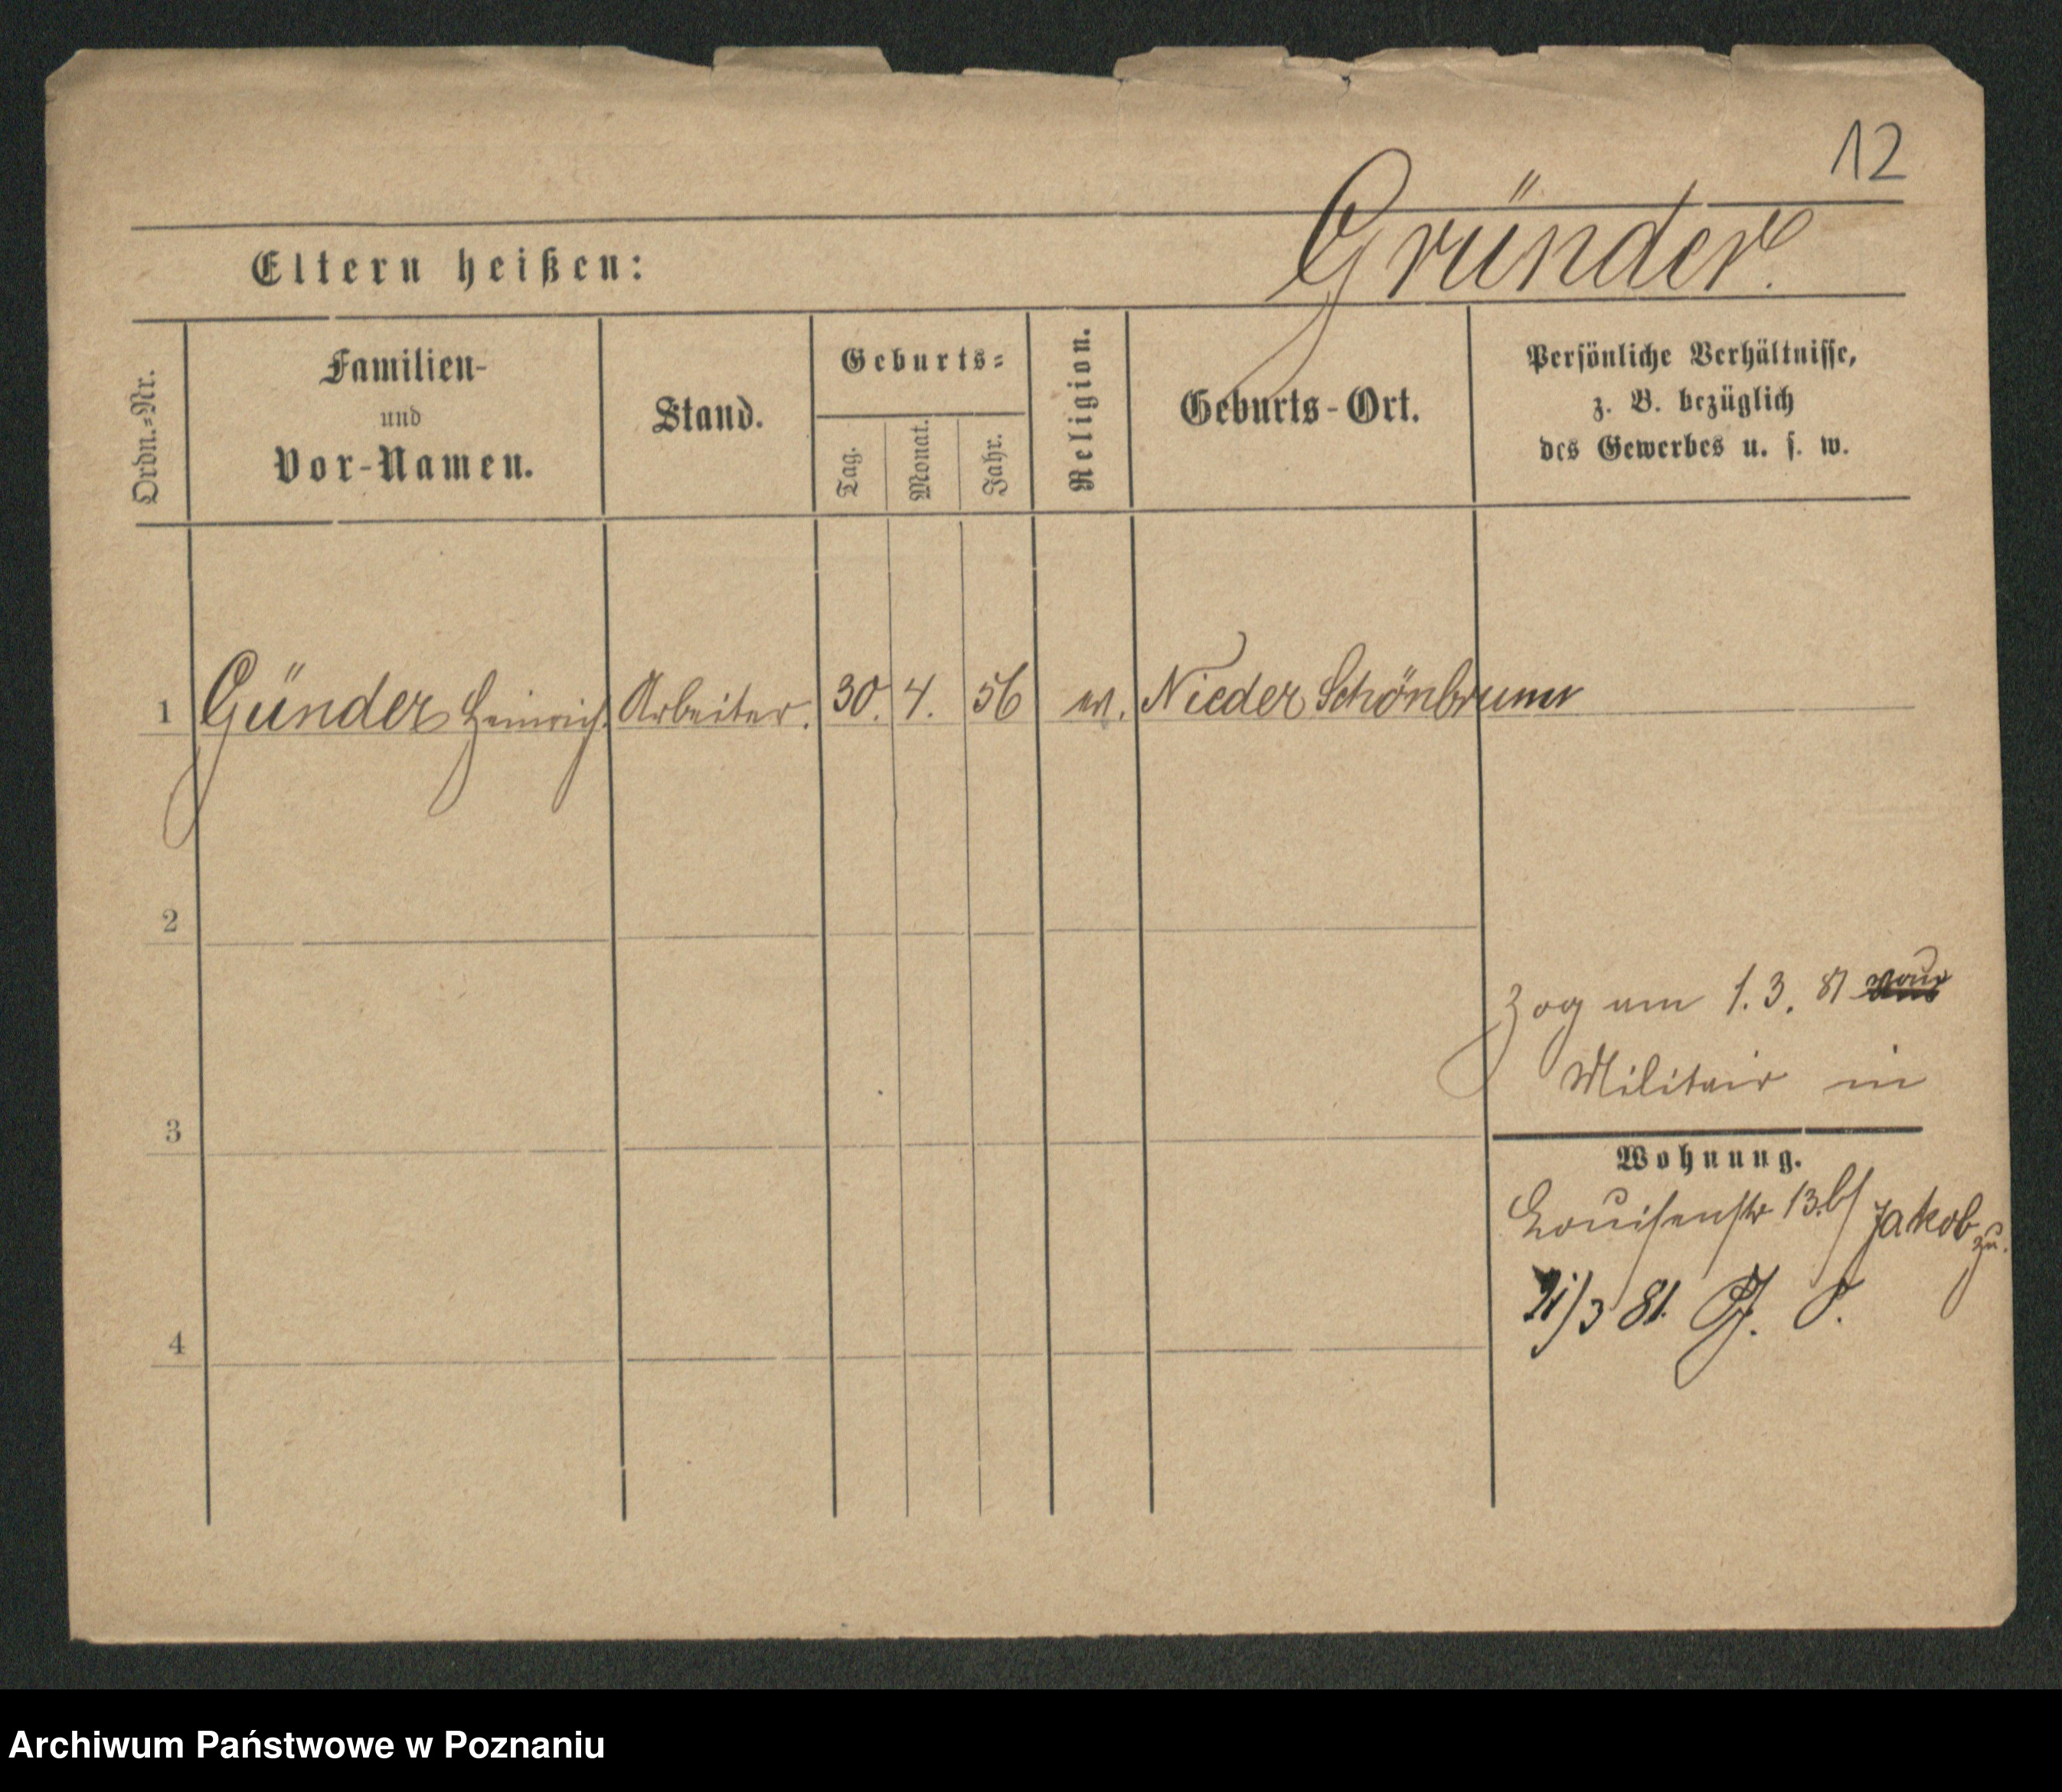 12
Gründer.
Eltern heißen:
Ordn.-Nr.
Familien-
und
Vor-Namen.
Stand.
Geburts-
Tag.
Monat.
Jahr.
Religion.
Geburts-Ort.
Persönliche Verhältnisse,
z. B. bezüglich
des Gewerbes u. s. w.
1 Günder Heinrich. Arbeiter. 30. 4. 56 ev. Nieder Schönbrunn
2
zog am 1.3. 81 vom
Militair in
3
Wohnung.
Louisenstr 13. b/ Jakob zu.
21/3 81.
4
Archiwum Państwowe w Poznaniu